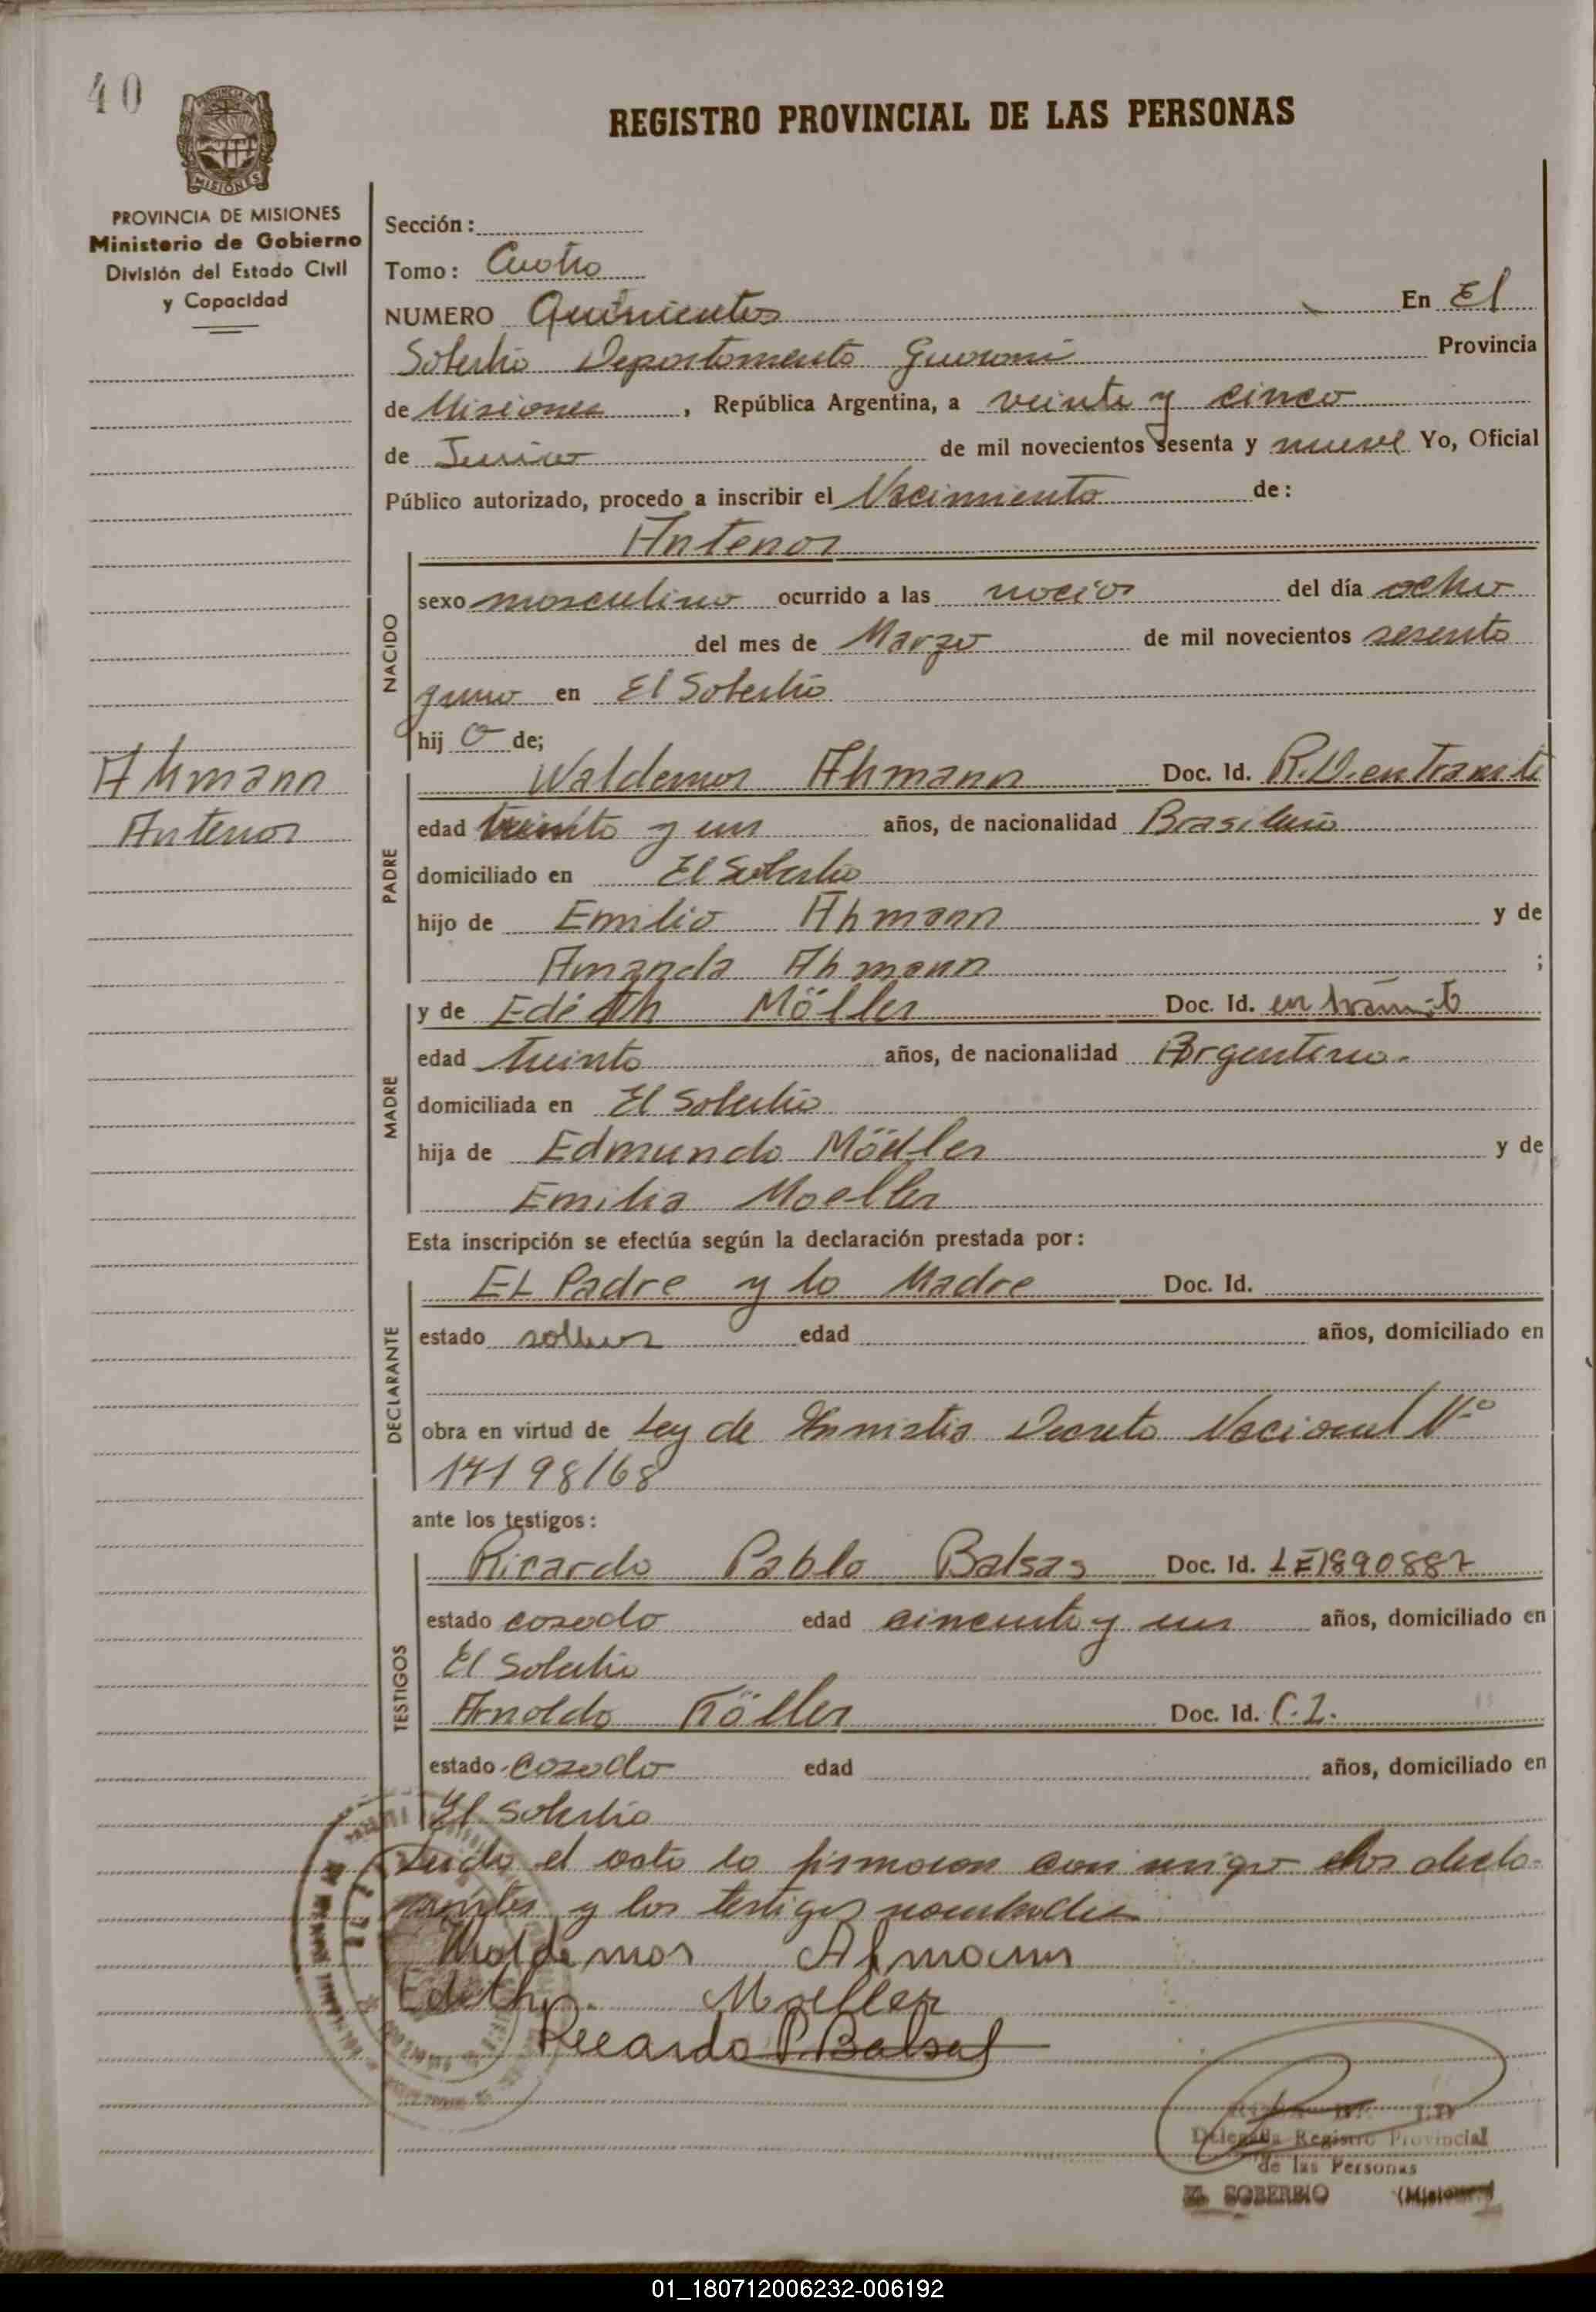 40
REGISTRO PROVINCIAL DE LAS PERSONAS
PROVINCIA DE MISIONES
Ministerio de Gobierno
División del Estado Civil
y Capacidad
Sección:
Tomo: Cuatro
NUMERO Quinientos En El
Soberbio Departamento Guarani Provincia
de Misiones, República Argentina, a veinte y cinco
de Junio de mil novecientos sesenta y nueve Yo, Oficial
Público autorizado, procedo a inscribir el Nacimiento de:
Antenor
NACIDO
sexo masculino ocurrido a las del día ocho
del mes de Marzo de mil novecientos sesenta
y uno en El Soberbio
hijo de;
Ahmann
Antenor
PADRE
Waldemar Ahmann Doc. Id. en Tramite
edad treinta y un años, de nacionalidad Brasileño
domiciliado en El Soberbio
hijo de Emilio Ahmann y de
Amanda Ahmann ;
MADRE
y de Edith Möller Doc. Id. en trámite
edad treinta años, de nacionalidad Argentina.
domiciliada en El Soberbio
hija de Edmundo Möeller y de
Emilia Moeller
Esta inscripción se efectúa según la declaración prestada por:
DECLARANTE
EL Padre y la Madre Doc. Id.
estado edad años, domiciliado en
obra en virtud de Ley de Amnistia Decreto Nacional Nº
17198/68
ante los testigos:
TESTIGOS
Ricardo Pablo Balsas Doc. Id. LE1890887
estado casado edad cincuenta y un años, domiciliado en
El Soberbio
Arnoldo Doc. Id. C.I.
estado casado edad años, domiciliado en
El Soberbio
Leido el acta la firmaron conmigo los decla-
rantes y los testigos nombrados
Waldemar Ahmann
Edith Moeller
Ricardo P. Balsas
Delegada Registro Provincial
de las Personas
EL SOBERBIO (Misiones)
01_180712006232-006192